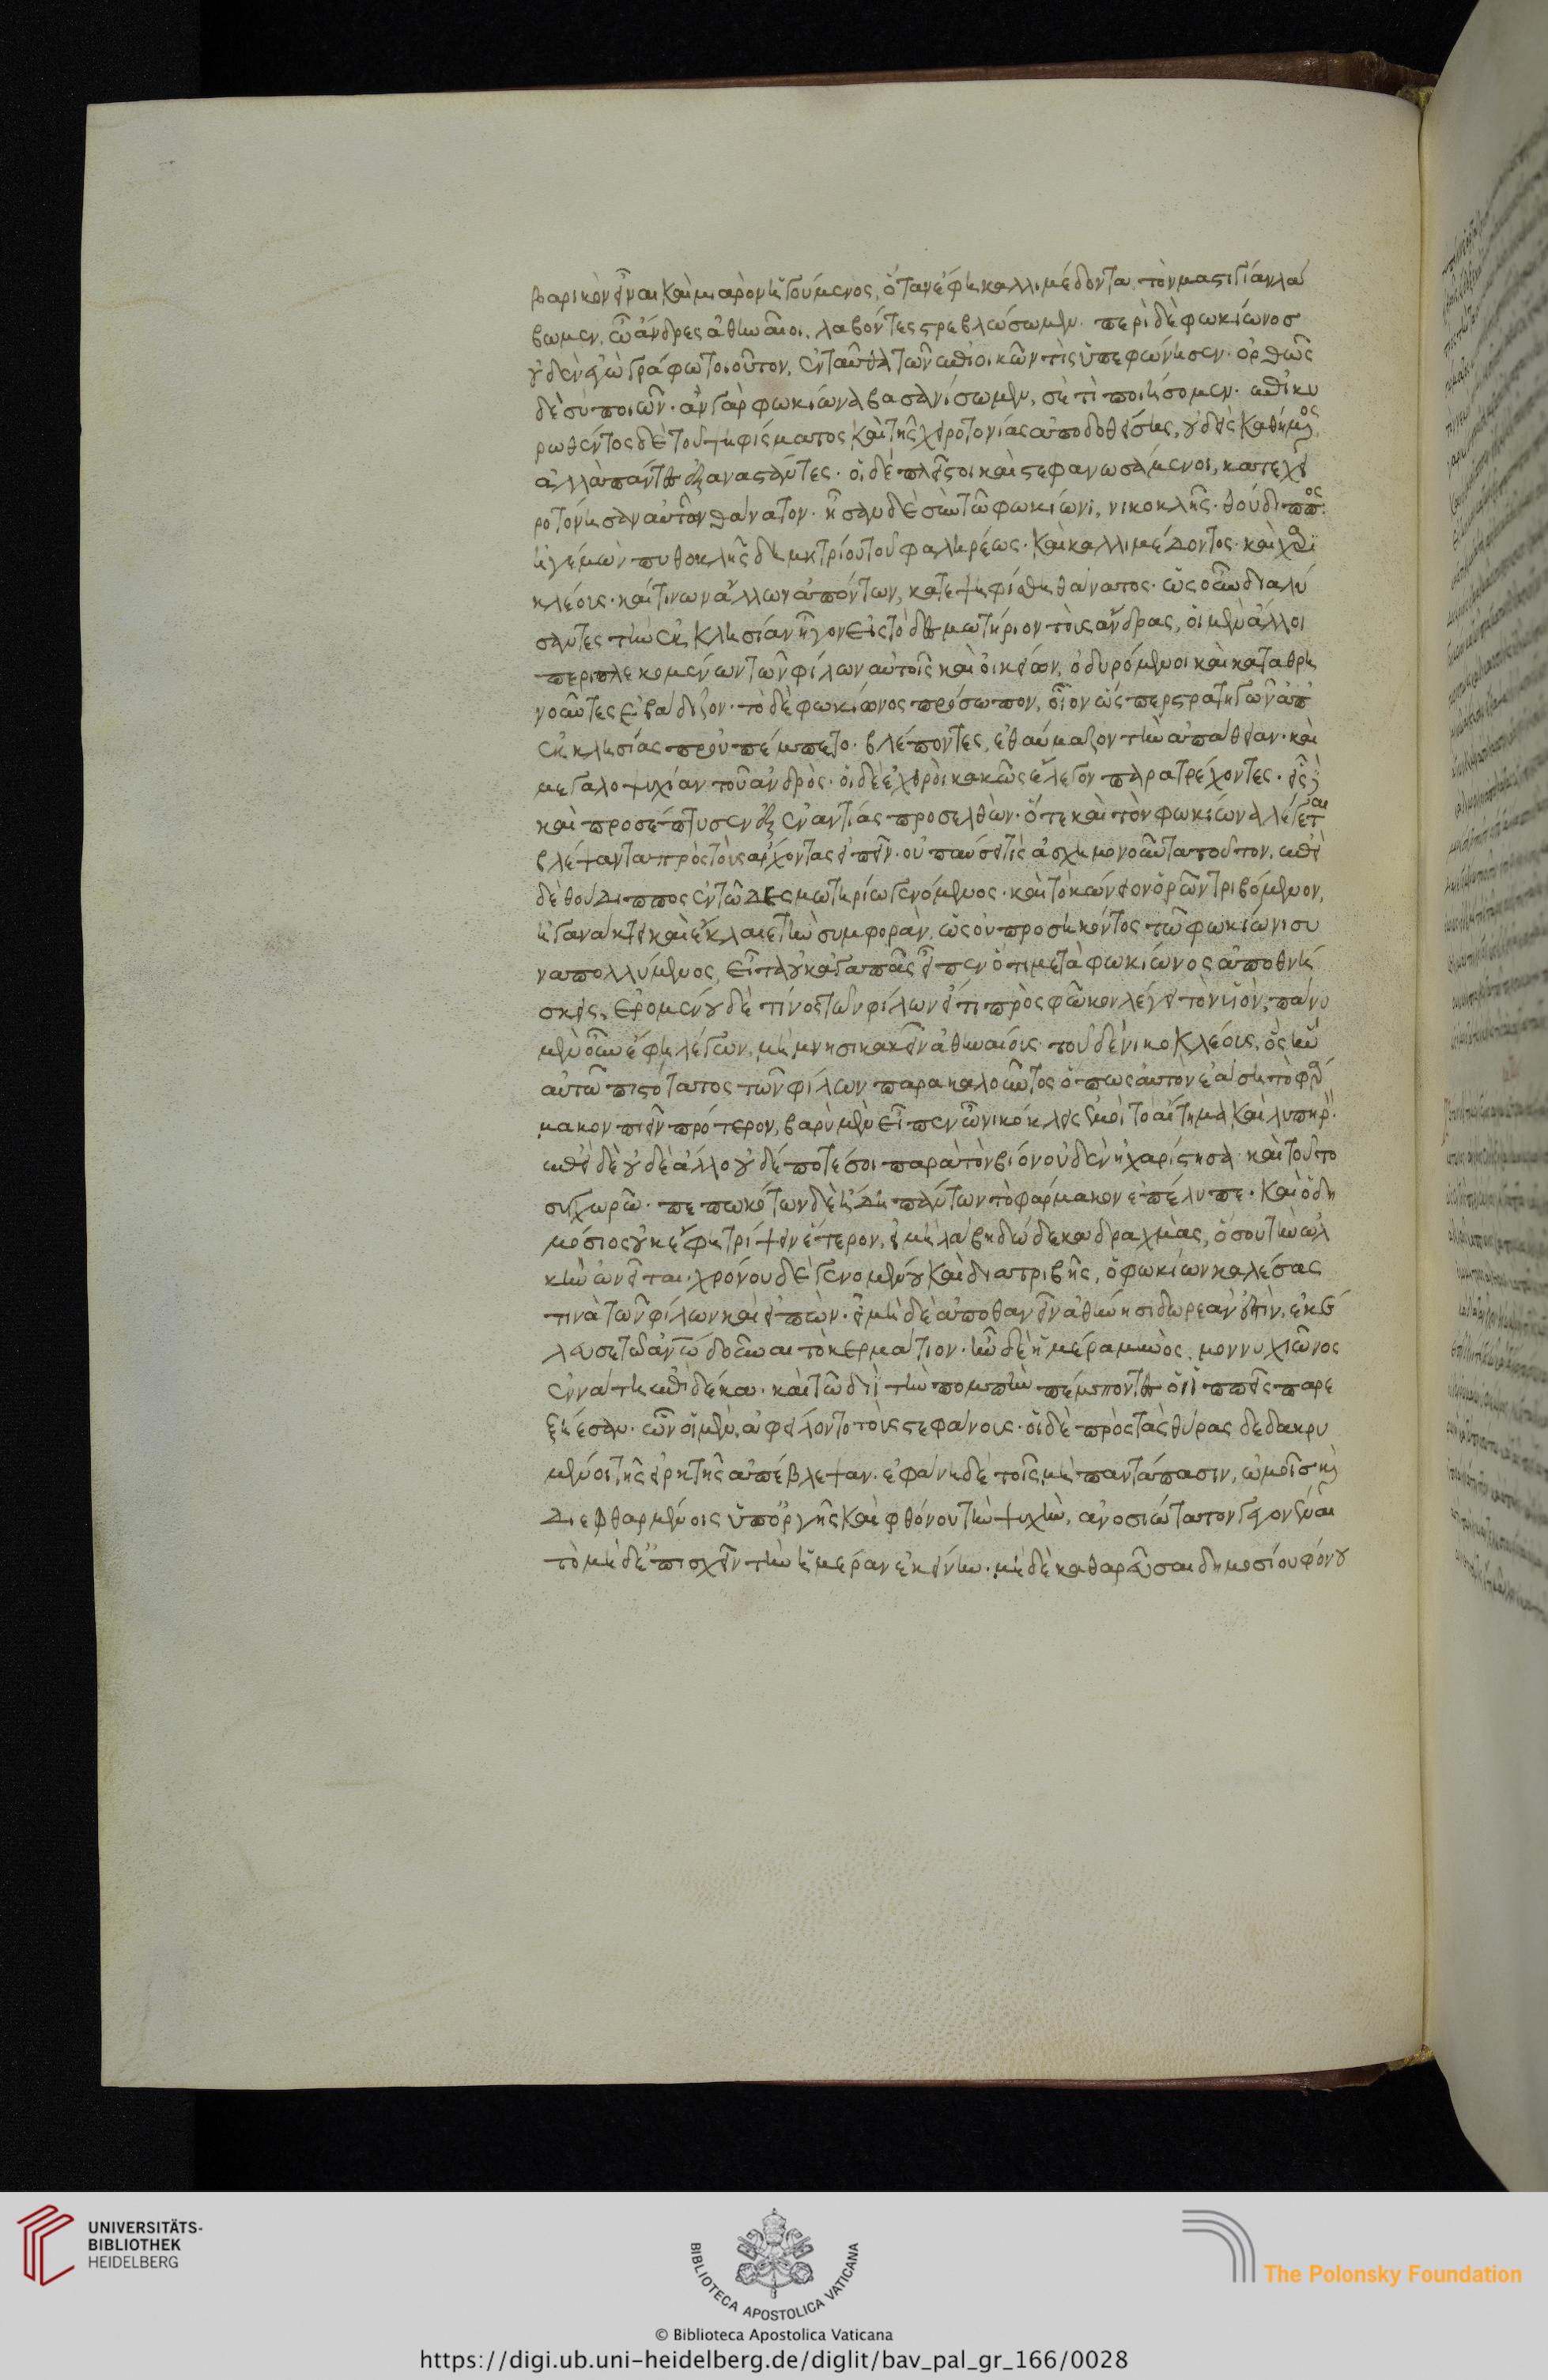 βαρικὸν εἶναι καὶ μιαρὸν ἡγούμενος, ὅταν ἔφη καλλιμέδοντα τὸν μαστιγίαν λά
βωμεν, ὦ ἄνδρες ἀθηναῖοι, λαβόντες στρεβλώσωμεν. περὶ δὲ φωκίωνοσ
οὐδὲν ἐγὼ γράφω τοιοῦτον, ἐνταῦθα τῶν ἐπιοικῶν τὶς ὑπεφώνησεν. ὀρθῶς
δὲ σὺ ποιῶν. ἂν γὰρ φωκίωνα βασανίσωμεν, σὲ τί ποιήσομεν. ἐπικυ
ρωθέντος δὲ τοῦ ψηφίσματος καὶ τῆς χειροτονίας ἀποδοθείσης, οὐδεὶς καθήμενος,
ἀλλὰ πάντες ἐξαναστάντες. οἱ δὲ πλεῖστοι καὶ στεφανωσάμενοι, κατεχει
ροτόνησαν αὐτῶν θάνατον. ἦσαν δὲ σὺν τῷ φωκίωνι, νικοκλῆς. θούδιππος.
ἡγέμων πυθοκλῆς δημητρίου τοῦ φαληρέως. καὶ καλλιμέδοντος. καὶ χαρι
κλέους. καί τινων ἄλλων ἀπόντων, κατεψηφίσθη θάνατος. ὡς οὖν διαλύ
σαντες τὴν ἐκκλησίαν ἦγον εἰς τὸ δεσμωτήριον τοὺς ἄνδρας, οἱ μὲν ἄλλοι
περιπλεκομένων τῶν φίλων αὐτοῖς καὶ οἰκείων, ὀδυρόμενοι καὶ καταθρη
νοῦντες ἐβάδιζον. τὸ δὲ φωκίωνος πρόσωπον, οἷον ὥσπερ στρατηγῶν ἀπ
ἐκκλησίας προὐπέμπετο. βλέποντες, ἐθαύμαζον τὴν ἀπάθειαν. καὶ
μεγαλοψυχίαν τοῦ ἀνδρὸς. οἱ δὲ ἐχθροὶ κακῶς ἔλεγον παρατρέχοντες. εἷς δὲ
καὶ προσέπτυσεν ἐξ ἐναντίας προσελθών. ὅτε καὶ τὸν φωκίωνα λέγεται
βλέψαντα πρὸς τοὺς ἄρχοντας εἰπεῖν. οὐ παύσει τὶς ἀσχημονοῦντα τοῦτον. ἐπεὶ
δὲ θούδιππος ἐν τῷ δεσμωτηρίω γενόμενος. καὶ τὸ κώνειον ὁρῶν τριβόμενον,
ἠγανάκτει καὶ ἔκλαιε τὴν συμφορὰν, ὡς οὐ προσηκόντος τῷ φωκίωνι συ
ναπολλύμενος, εἶτα οὐκ ἀγαπᾶς εἶπεν ὅτι μετὰ φωκίωνος ἀποθνή
σκεις. ἐρομένου δὲ τίνος τῶν φίλων εἴ τι πρὸς φῶκον λέγει τὸν υἱὸν, πάνυ
μὲν οὖν ἔφη λέγων, μὴ μνησικακεῖν ἀθηναίοις. τοῦ δὲ νικοκλέους, ὃς ἦν
αὐτῷ πιστότατος τῶν φίλων παρακαλοῦντος ὅπως αὐτὸν ἐάσῃ τὸ φάρ
μακον πιεῖν πρότερον, βαρὺ μὲν εἶπεν ὦ νικόκλεις ἐμοὶ τὸ αἴτημα καὶ λυπηρόν.
ἐπεὶ δὲ οὐδὲ ἄλλο οὐδέποτέ σοι παρὰ τὸν βίον οὐδὲν ἠχαρίστησα καὶ τοῦτο
συγχωρῶ. πεπωκότων δὲ ἤδη πάντων τὸ φάρμακον ἐπέλυπε. καὶ ὁ δη
μόσιος οὐκ ἔφη τρίψειν ἕτερον, εἰ μὴ λάβη δώδεκα δραχμὰς, ὅσου τὴν ὁλ
κὴν ὠνεῖται. χρόνου δὲ γενομένου καὶ διατριβῆς, ὁ φωκίων καλέσας
τινὰ τῶν φίλων καὶ εἰπὼν. εἰ μὴ δὲ ἀποθανεῖν ἀθήνησι δωρεὰν ἐστὶν, ἐκέ
λευσε τῷ ἀνω δοῦναι τὸ κερμάτιον. ἦν δὲ ἡμέρα μηνὸς, μοννυχιῶνος
ἐννάτη ἐπὶ δέκα. καὶ τῷ διῒ τὴν πομπὴν πέμποντες οἱ ἱππεῖς παρε
ξήεσαν. ὧν οἱ μὲν, ἀφείλοντο τοὺς στεφάνους. οἱ δὲ πρὸς τὰς θύρας δεδακρυ
μένοι τῆς εἱρκτῆς ἀπέβλεψαν. ἐφάνη δὲ τοῖς μὴ παντάπασιν, ὠμοῖς καὶ
διεφθαρμένοις ὑπ' ὀργῆς καὶ φθόνου τὴν ψυχὴν, ἀνοσιώτατον γεγονέναι
τὸ μὴ δὲ ἐπισχεῖν τὴν ἡμέραν ἐκείνην. μὴ δὲ καθαρεῦσαι δημοσίου φόνου
UNIVERSITÄTS-
BIBLIOTHEK
HEIDELBERG
BIBLIOTECA APOSTOLICA VATICANA
The Polonsky Foundation
© Biblioteca Apostolica Vaticana
https://digi.ub.uni-heidelberg.de/diglit/bav_pal_gr_166/0028